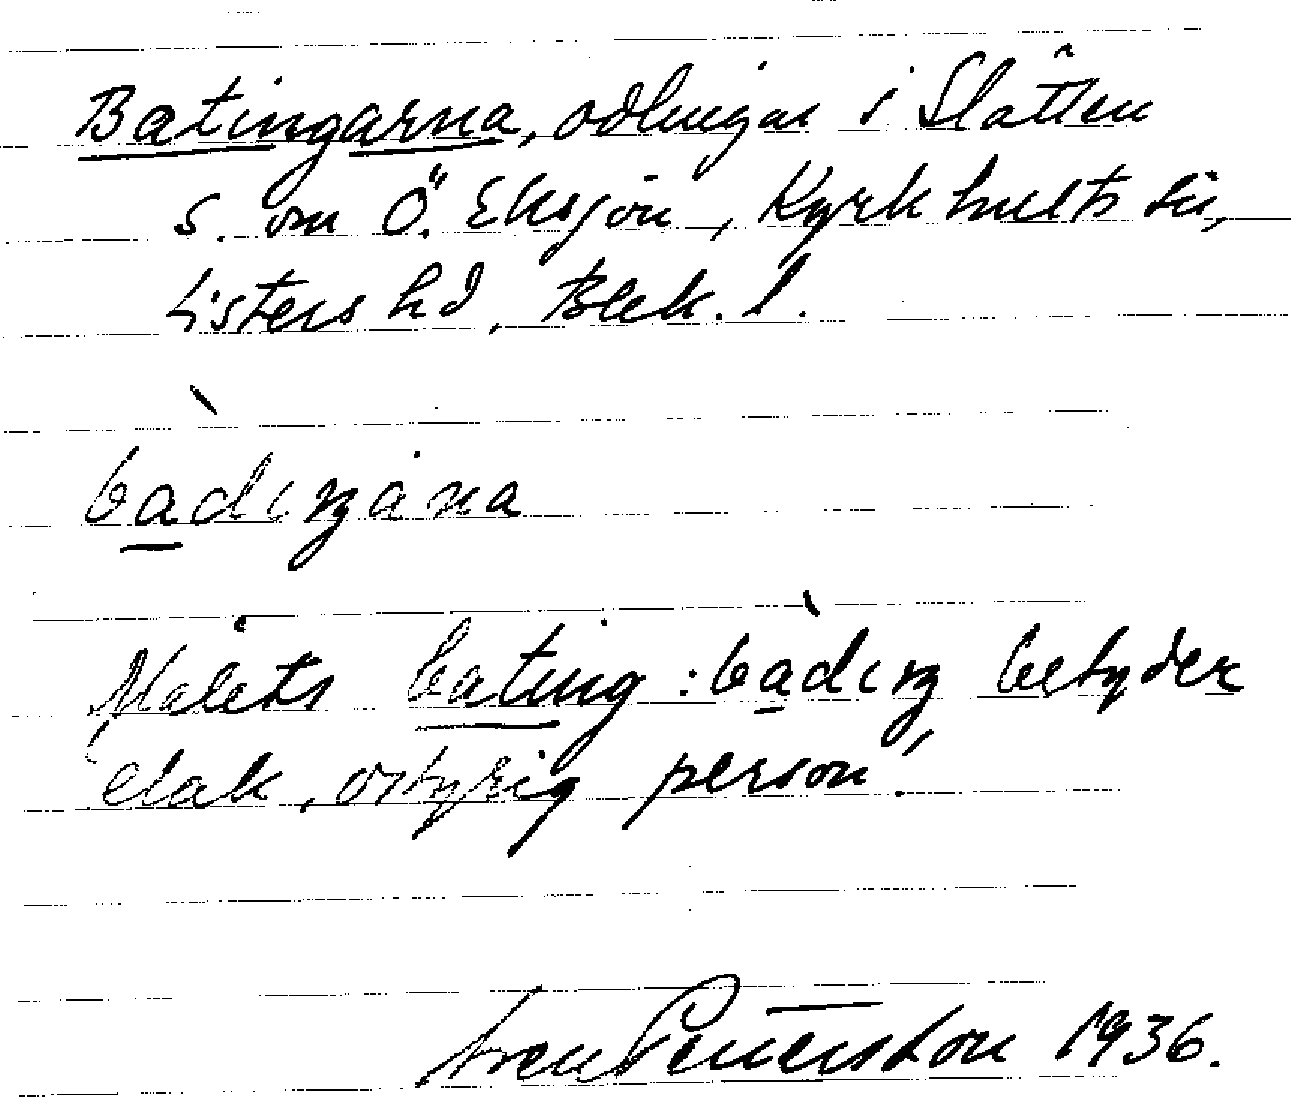 Batingarna, odlingar i Slätten
S. om Ö. Eksjön, Kyrkhults sn,
Listers hd, Blek. l.
bàdiŋana
Målets bating : bàdiŋ betyder
'elak, ostyrig person'.
Sven Benson 1936.